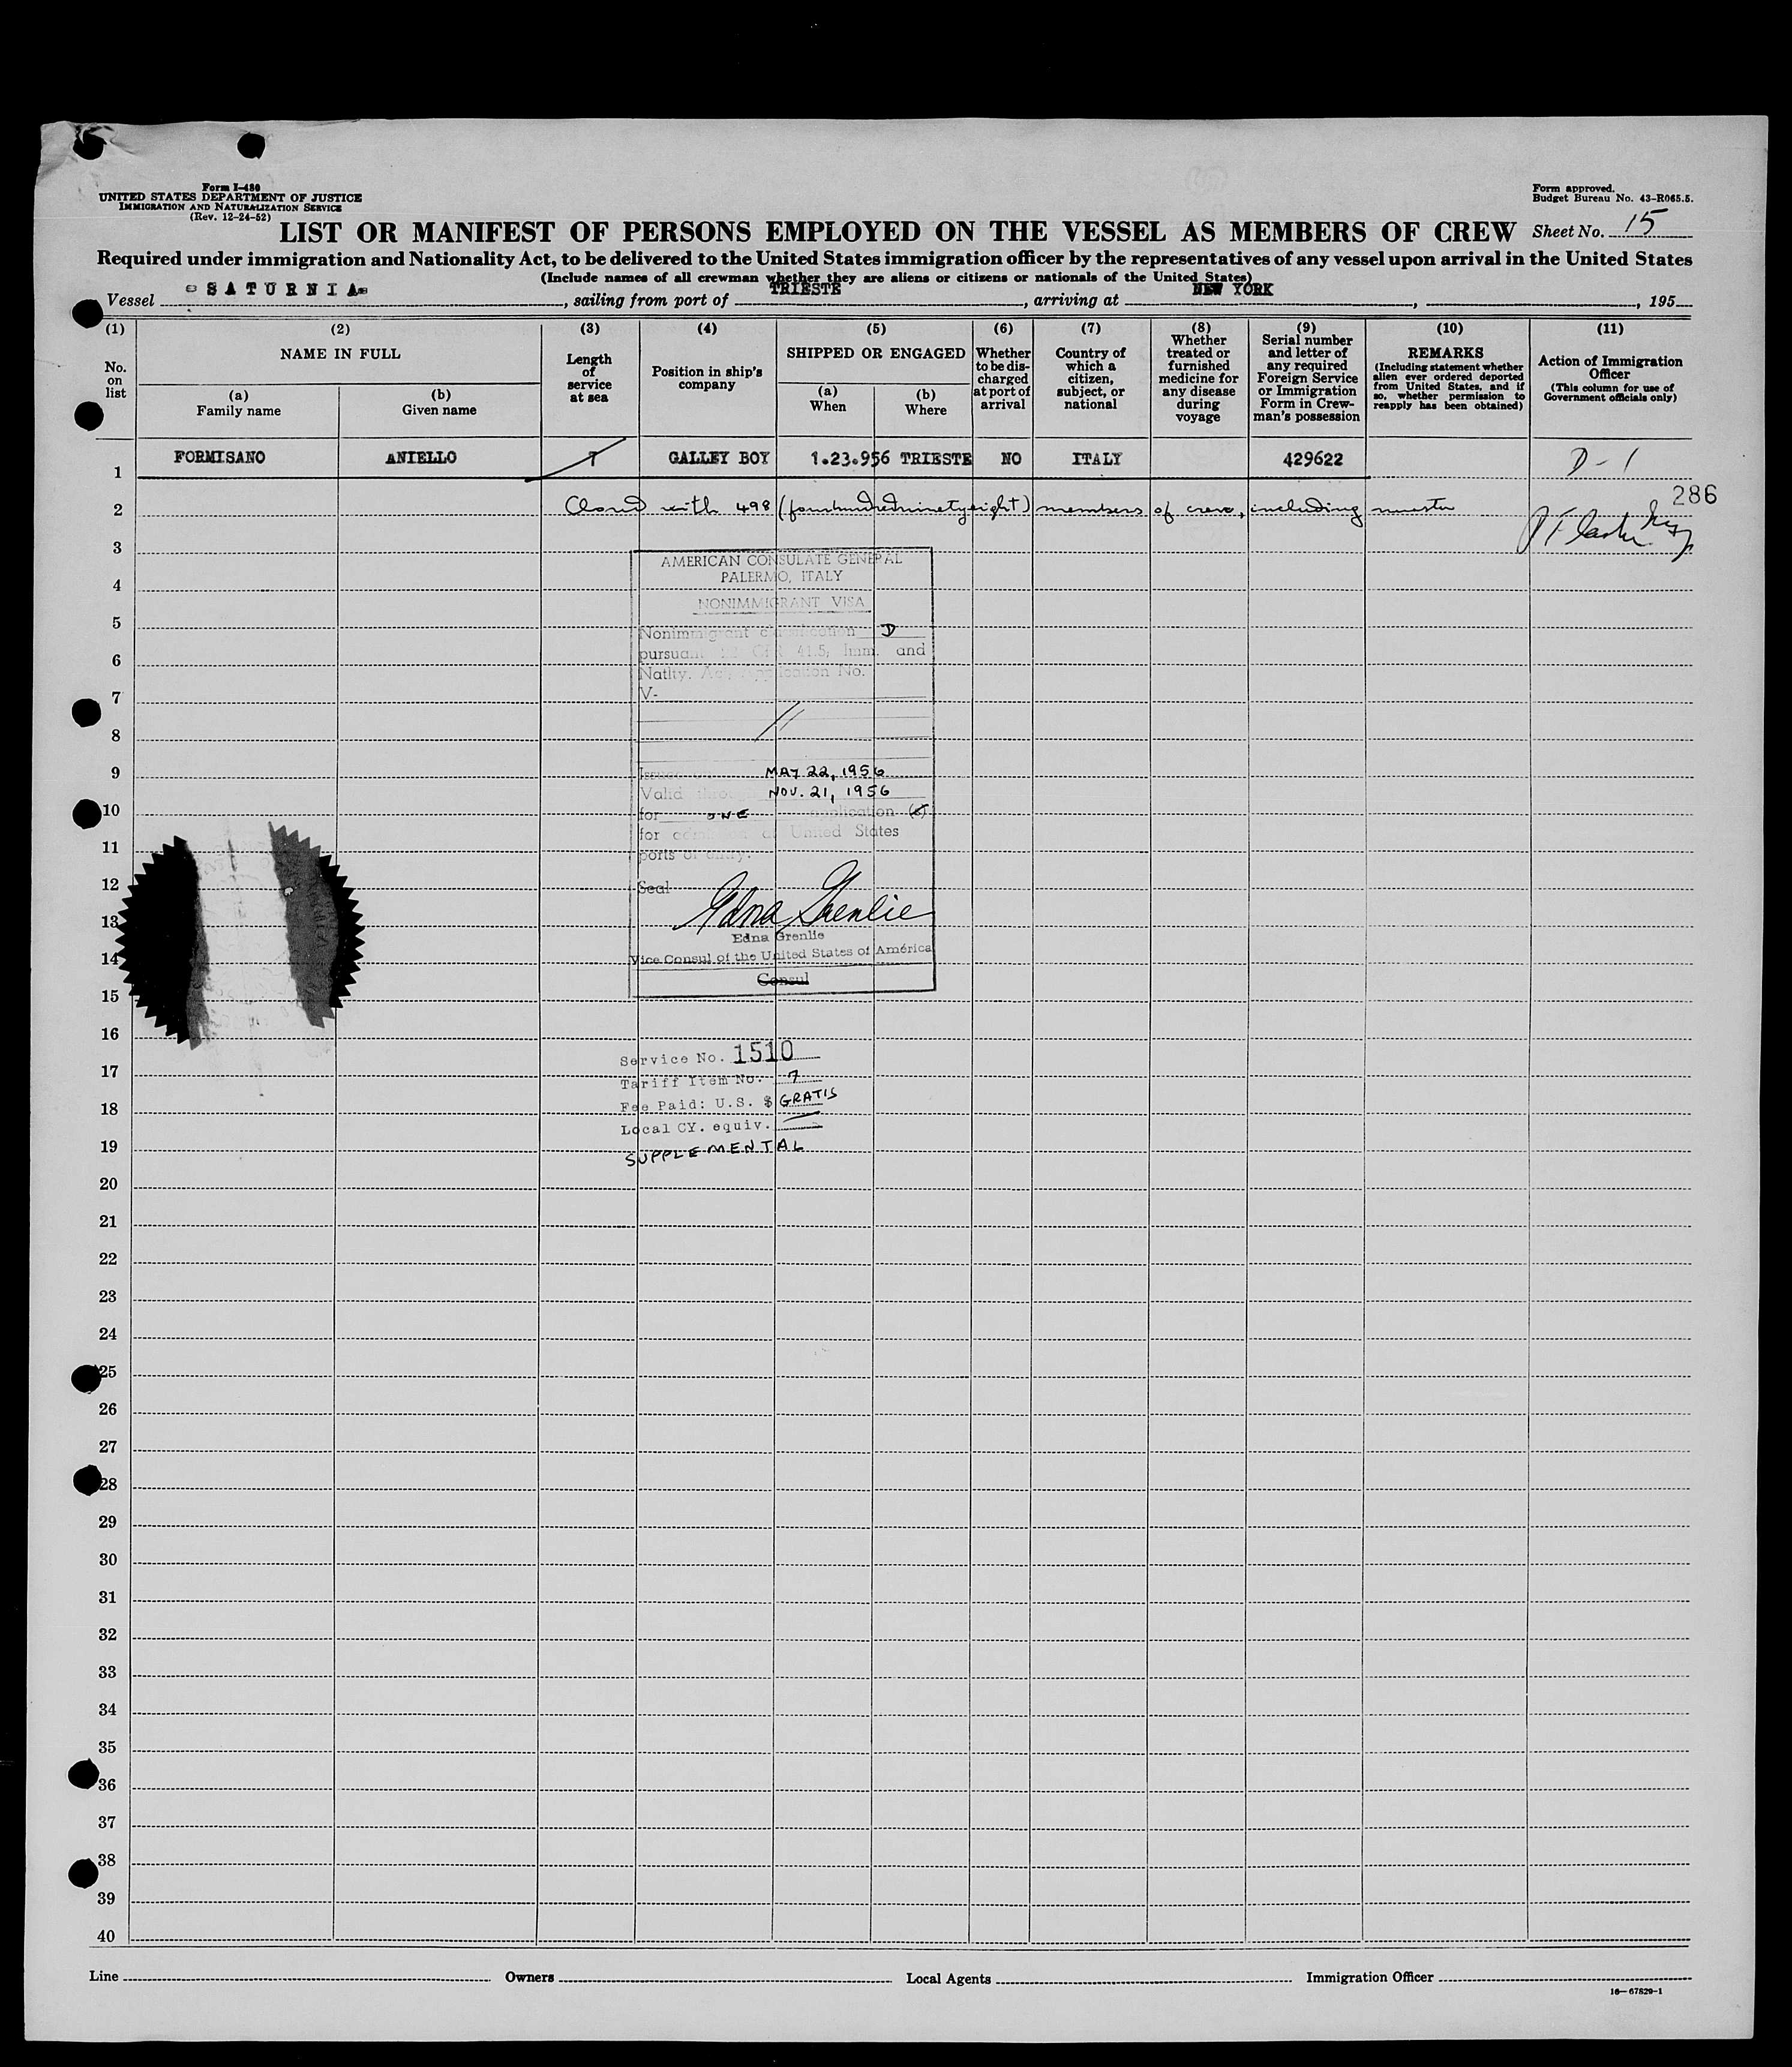 Form I-480
UNITED STATES DEPARTMENT OF JUSTICE
IMMIGRATION AND NATURALIZATION SERVICE
(Rev. 12-24-52)
Form approved.
Budget Bureau No. 43-R065.5.
LIST OR MANIFEST OF PERSONS EMPLOYED ON THE VESSEL AS MEMBERS OF CREW Sheet No. 15
Required under immigration and Nationality Act, to be delivered to the United States immigration officer by the representatives of any vessel upon arrival in the United States
(Include names of all crewman whether they are aliens or citizens or nationals of the United States)
Vessel =SATURNIA=, sailing from port of TRIESTE, arriving at NEW YORK, , 195
(1) (2) (3) (4) (5) (6) (7) (8) (9) (10) (11)
No. on list
NAME IN FULL
(a) Family name
(b) Given name
Length of service at sea
Position in ship's company
SHIPPED OR ENGAGED
(a) When
(b) Where
Whether to be discharged at port of arrival
Country of which a citizen, subject, or national
Whether treated or furnished medicine for any disease during voyage
Serial number and letter of any required Foreign Service or Immigration Form in Crewman's possession
REMARKS
(Including statement whether alien ever ordered deported from United States, and if so, whether permission to reapply has been obtained)
Action of Immigration Officer
(This column for use of Government officials only)
1 FORMISANO ANIELLO 7 GALLEY BOY 1.23.956 TRIESTE NO ITALY 429622 D-1
286
2 Closed with 498 (fourhundredninetyeight) members of crew, including master
3
AMERICAN CONSULATE GENERAL
4
PALERMO, ITALY
NONIMMIGRANT VISA
5
Nonimmigrant classification D
6
pursuant 22 CFR 41.5; Imm. and
Natlty. Act Application No.
7
V-
8
9
Issued on MAY 22, 1956
Valid through NOV. 21, 1956
10
for ONE application (s)
for admission at United States
11
ports of entry.
12
Seal
Edna Grenlie
13
Edna Grenlie
14
Vice Consul of the United States of América
Consul
15
16
Service No. 1510
17
Tariff Item No. 7
18
Fee Paid: U.S. $ GRATIS
Local CY. equiv.
19
SUPPLEMENTAL
20
21
22
23
24
25
26
27
28
29
30
31
32
33
34
35
36
37
38
39
40
Line Owners Local Agents Immigration Officer
16—67829-1